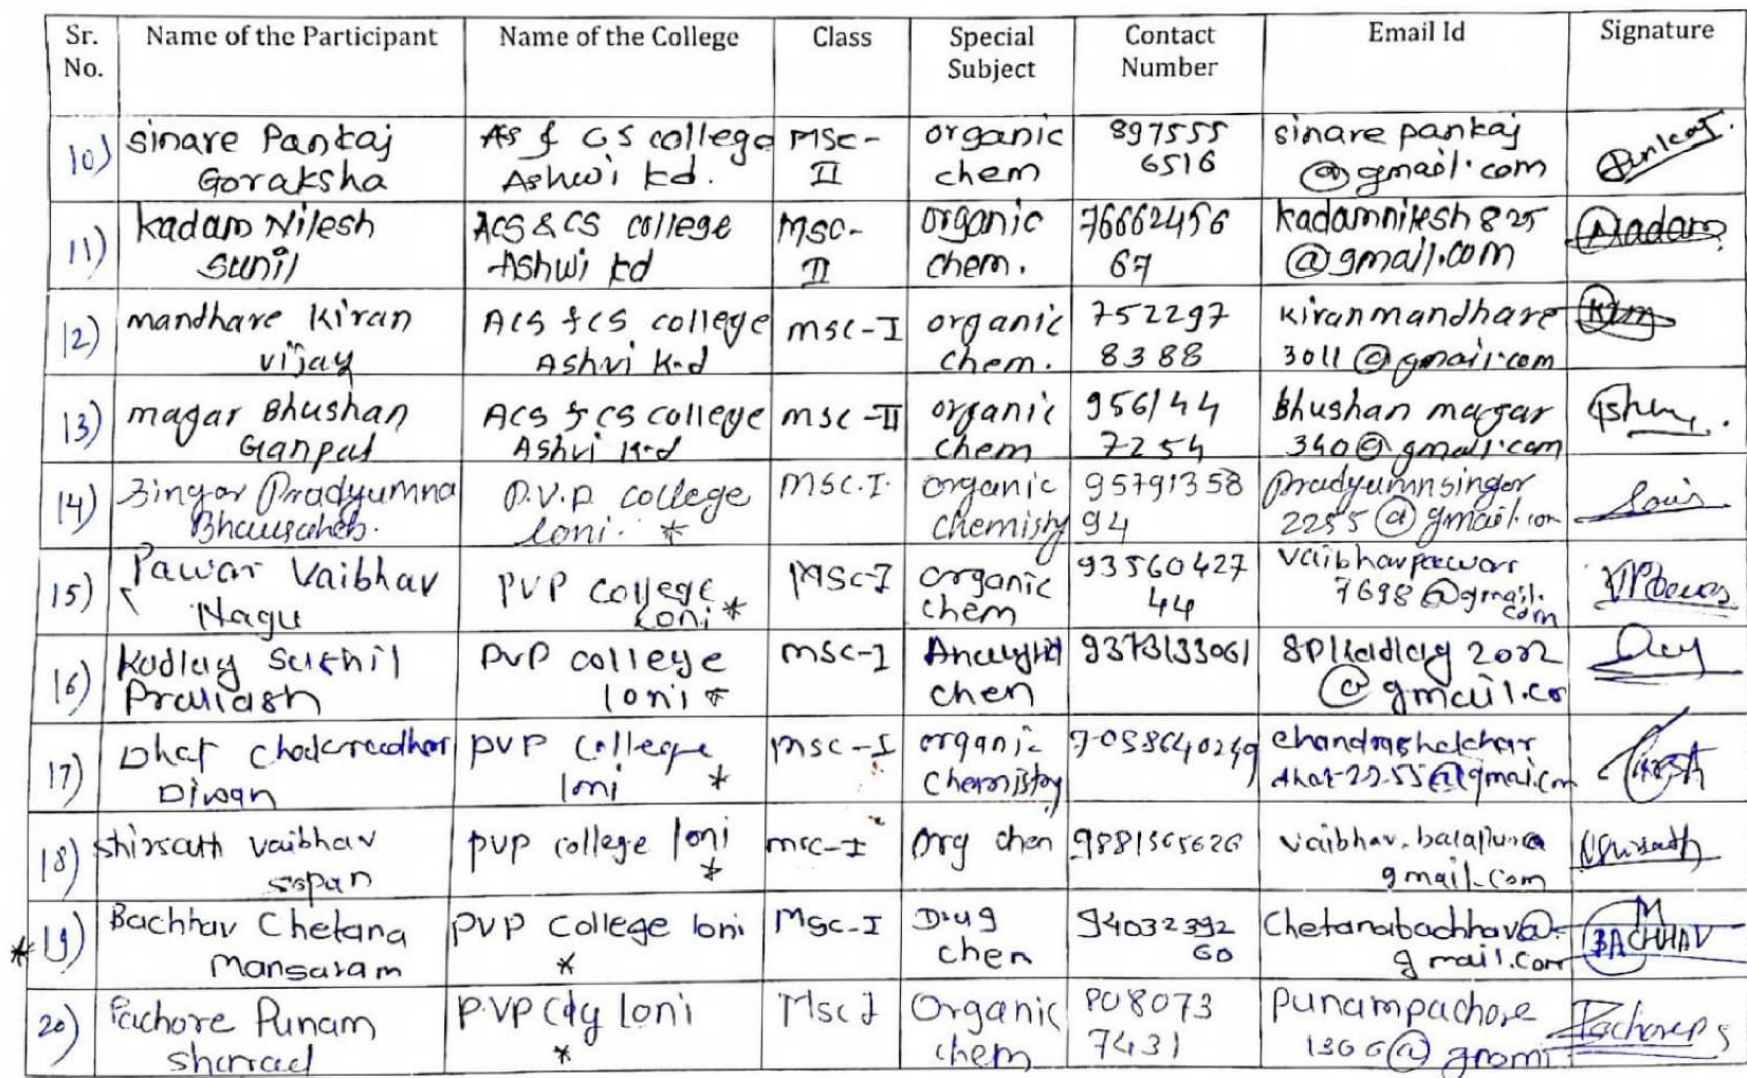 Sr. No. Name of the Participant Name of the College Class Special Subject Contact Number Email Id Signature
10) Sinare Pankaj Goraksha As & CS college Ashwi kd. MSC-II organic chem 897555 6516 sinare pankaj @gmail.com
11) kadam Nilesh Sunil ACS & CS college Ashwi kd MSC-II organic chem. 76662456 67 kadamnilesh 825 @gmail.com
12) mandhare kiran vijay ACS & CS college Ashvi K.d msc-I organic chem. 752297 8388 kiranmandhare 3011@gmail.com
13) magar Bhushan Ganpat ACS & CS college Ashvi K.d msc-II organic chem 956144 7254 Bhushan magar 340@gmail.com
14) Singar Pradyumna Bhausaheb. P.V.P. college loni. * MSC.I. organic chemistry 95791358 94 pradyumnsingar 2255@gmail.com
15) Pawar Vaibhav Nagu PVP college Loni * MSc-I organic chem 93560427 44 vaibhavpawar 7698@gmail.com
16) Kadlag Sushil Prakash PVP college loni * msc-I chem 9373133061 spkadlag 2022 @gmail.co
17) Dhat Diwan PVP College loni * msc-I organic chemistry 7058640249
18) Shirsath vaibhav sopan pvp college loni * msc-I Org chem 9881565626 gmail.com
* 19) Bachhav Chetana Mansaram PVP College loni * MSc-I Drug chem 94032392 60 Chetanabachhav@gmail.com BACHHAV
20) Pachore Punam sharad P.VP Clg loni * Msc I Organic chem 908073 7431 punampachore 1366@